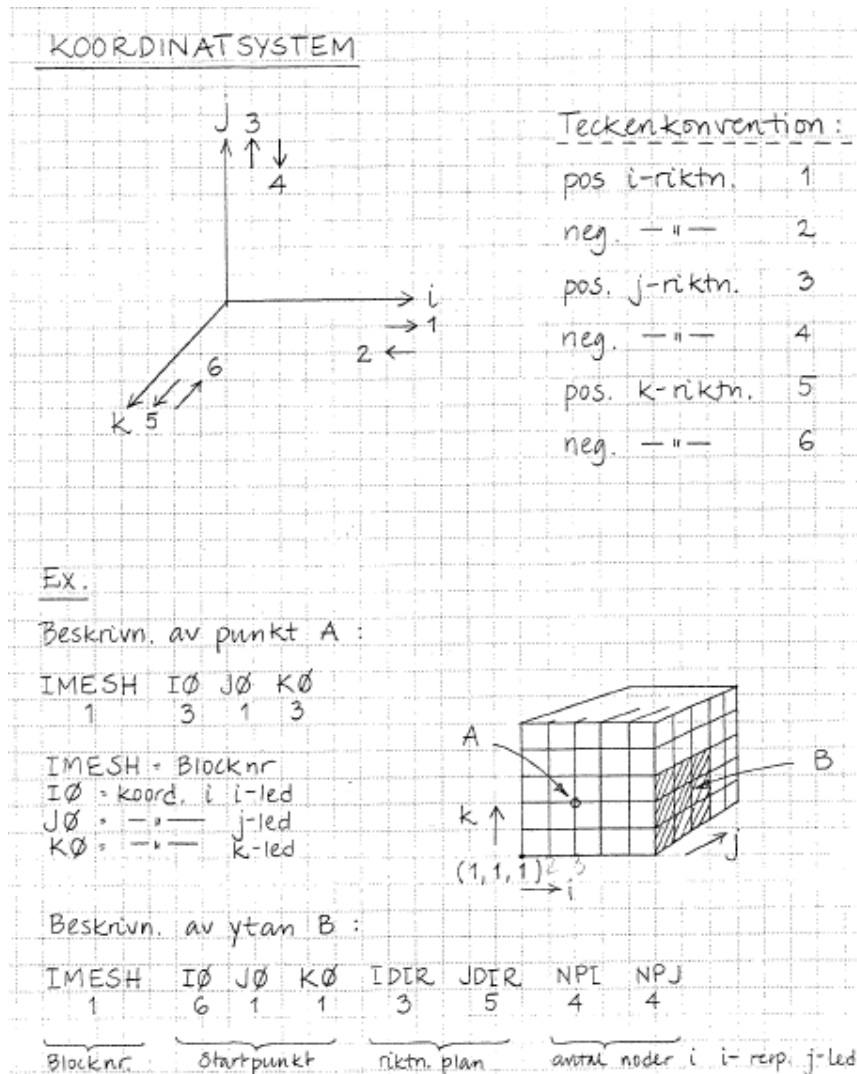 KOORDINATSYSTEM
J 3
4
i
1
2
6
k 5
Teckenkonvention:
pos i-riktn. 1
neg. —"— 2
pos. j-riktn. 3
neg. —"— 4
pos. k-riktn. 5
neg. —"— 6
Ex.
Beskrivn. av punkt A :
IMESH IØ JØ KØ
1 3 1 3
IMESH = Blocknr
IØ = koord. i i-led
JØ = —"— j-led
KØ = —"— k-led
A
B
k
j
(1,1,1) 2 3
i
Beskrivn. av ytan B :
IMESH IØ JØ KØ IDIR JDIR NPI NPJ
1 6 1 1 3 5 4 4
Blocknr. Startpunkt riktn. plan antal noder i i- resp. j-led